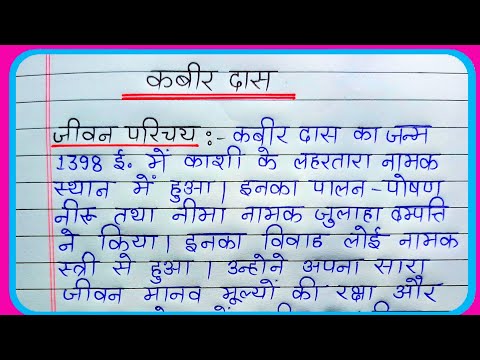 कबीर दास
जीवन परिचय :- कबीर दास का जन्म
1398 ई. में काशी के लहरतारा नामक
स्थान में हुआ। इनका पालन-पोषण
नीरू तथा नीमा नामक जुलाहा दम्पत्ति
ने किया। इनका विवाह लोई नामक
स्त्री से हुआ। उन्होने अपना सारा
जीवन मानव मूल्यों की रक्षा और